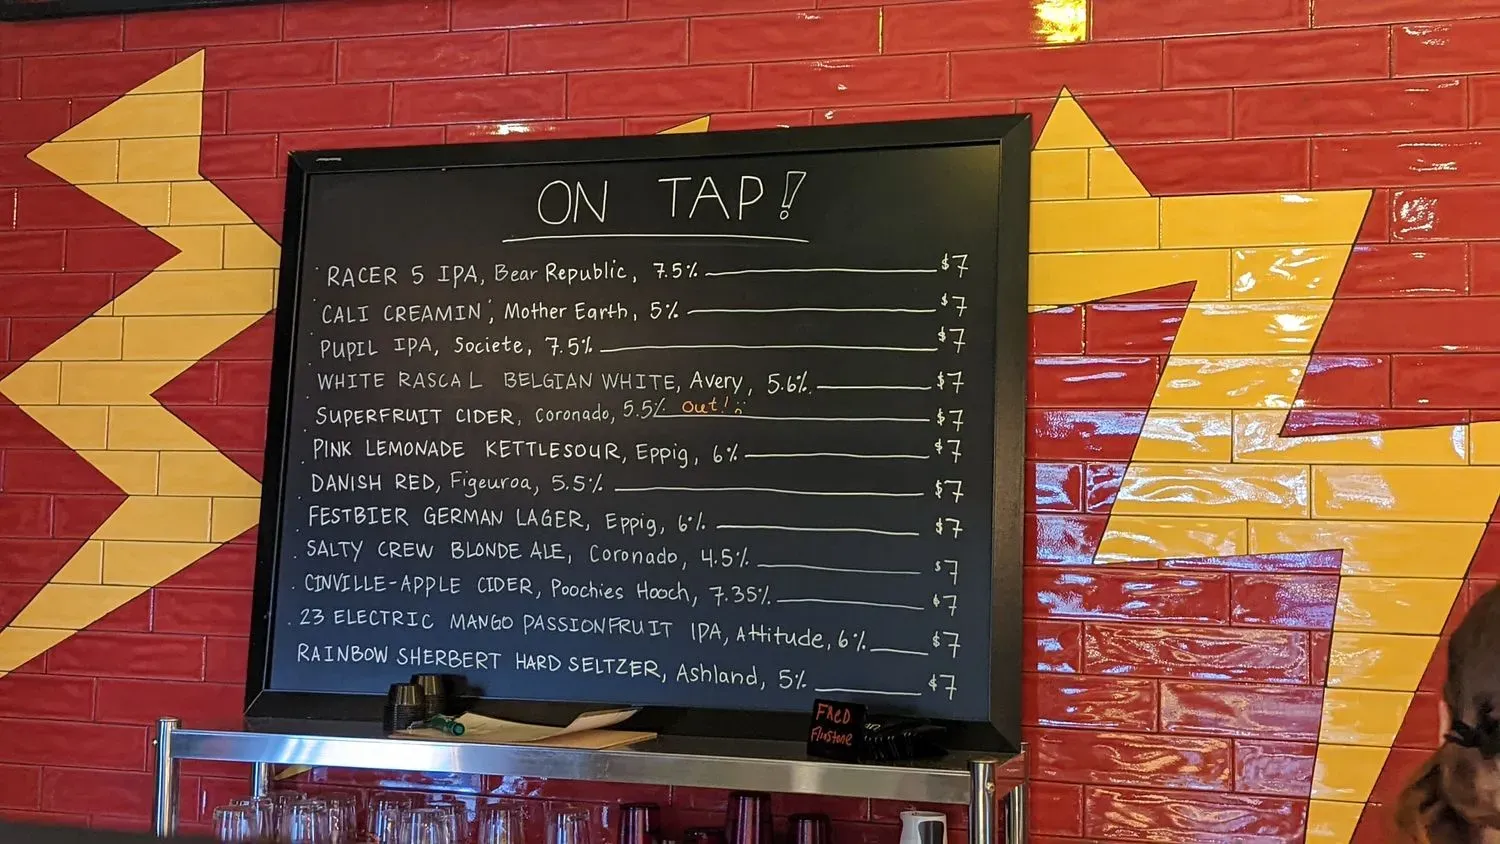 ON TAP!
RACER 5 IPA, Bear Republic, 7.5% $7
CALI CREAMIN', Mother Earth, 5% $7
PUPIL IPA, Societe, 7.5% $7
WHITE RASCAL BELGIAN WHITE, Avery, 5.6% $7
SUPERFRUIT CIDER, Coronado, 5.5% Out! $7
PINK LEMONADE KETTLESOUR, Eppig, 6% $7
DANISH RED, Figeuroa, 5.5% $7
FESTBIER GERMAN LAGER, Eppig, 6% $7
SALTY CREW BLONDE ALE, Coronado, 4.5% $7
CINVILLE-APPLE CIDER, Poochies Hooch, 7.35% $7
23 ELECTRIC MANGO PASSIONFRUIT IPA, Attitude, 6% $7
RAINBOW SHERBERT HARD SELTZER, Ashland, 5% $7
FRED
Flinstone